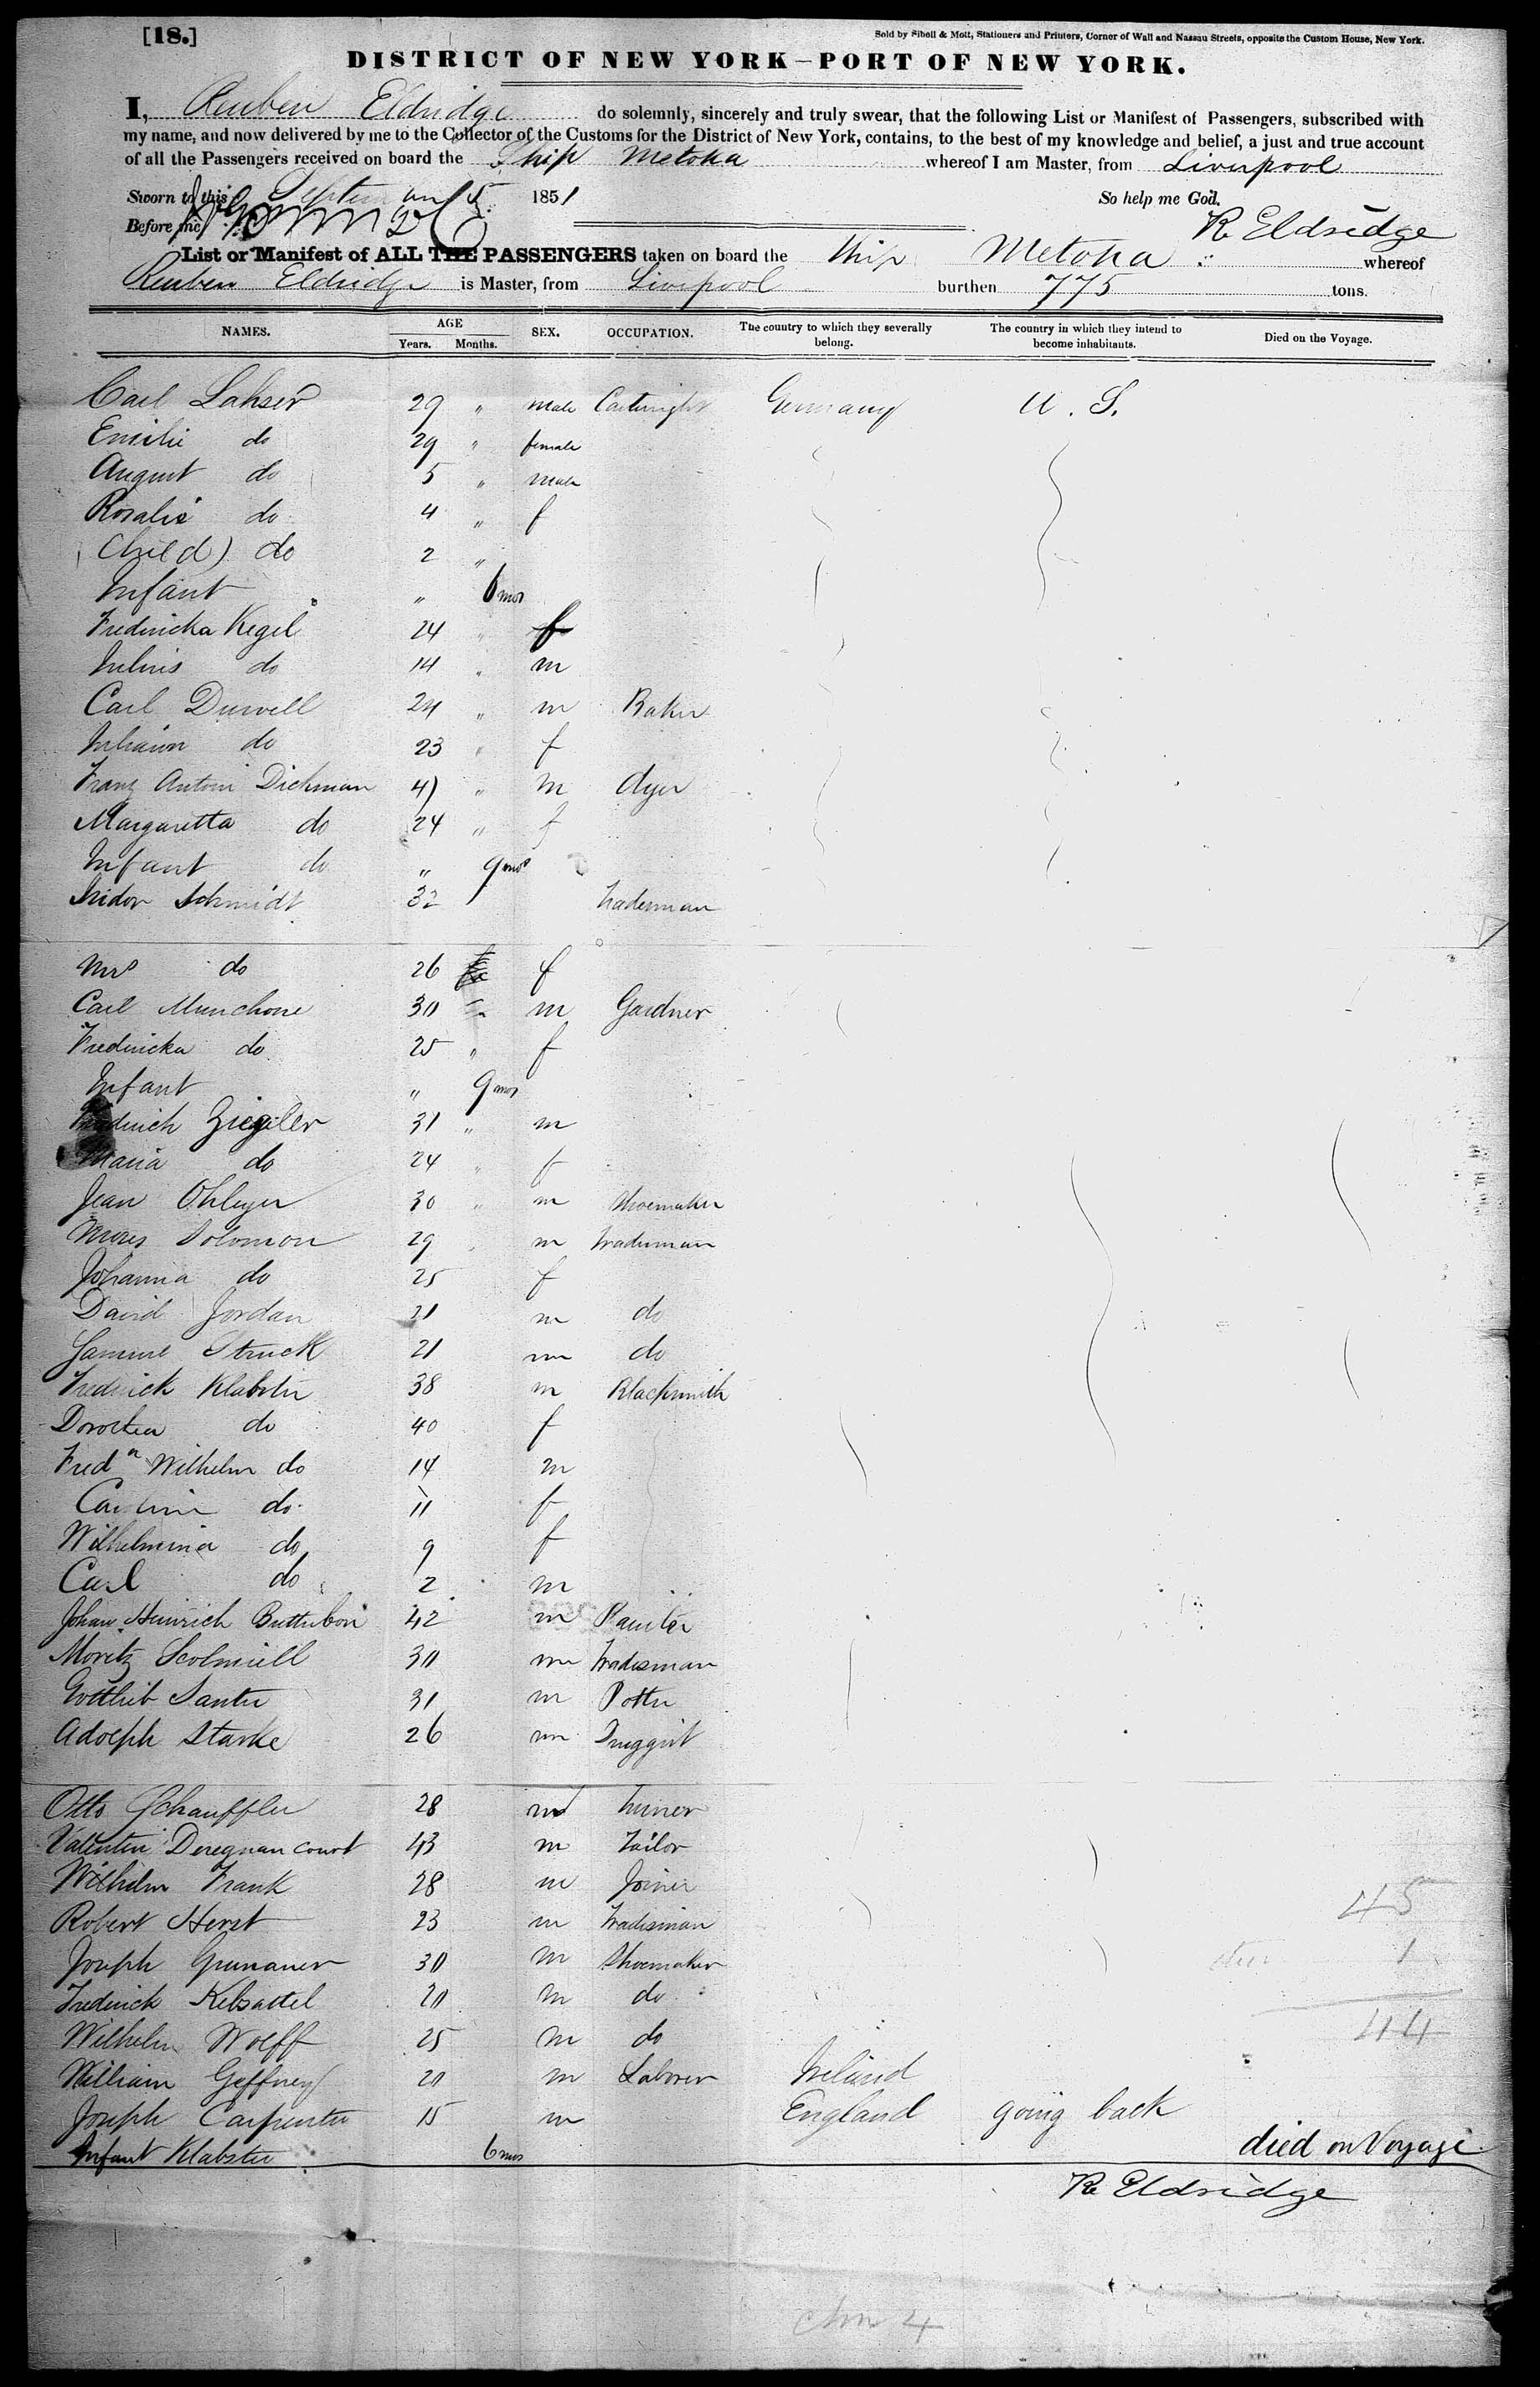 [18.]
Sold by Sibell & Mott, Stationers and Printers, Corner of Wall and Nassau Streets, opposite the Custom House, New York.
DISTRICT OF NEW YORK—PORT OF NEW YORK.
I, Reuben Eldridge do solemnly, sincerely and truly swear, that the following List or Manifest of Passengers, subscribed with
my name, and now delivered by me to the Collector of the Customs for the District of New York, contains, to the best of my knowledge and belief, a just and true account
of all the Passengers received on board the Ship Metoka whereof I am Master, from Liverpool
Sworn to this 5 1851 So help me God.
Before me R Eldridge
List or Manifest of ALL THE PASSENGERS taken on board the Ship Metoka whereof
Reuben Eldridge is Master, from Liverpool burthen 775 tons.
NAMES. AGE Years. Months. SEX. OCCUPATION. The country to which they severally belong. The country in which they intend to become inhabitants. Died on the Voyage.
Carl Lahser 29 " male Cartwright Germany U. S.
Emilie do 29 " female
August do 5 " male
Rosalie do 4 " f
Child) do 2 "
Infant " 6 mos
Fredericka Kegel 24 " f
Julius do 14 " m
Carl Durvell 24 " m Baker
do 23 " f
Franz Antoni Dickman 41 " m dyer
Margaretta do 24 " f
Infant do " 9 mos
Isidor Schmidt 32 Tradesman
Mrs do 26 f
Carl Munchone 30 " m Gardner
Fredericka do 25 " f
Infant " 9 mos
Fredrich Ziegiler 31 " m
Maria do 24 " f
Jean Ohleyer 30 " m Shoemaker
Moses Solomon 29 m tradesman
Johanna do 25 f
David Jordan 21 m do
Samuel Struck 21 m do
Frederick Klabster 38 m Blacksmith
Dorothea do 40 f
Fred Wilhelm do 14 m
Caroline do 11 f
Wilhelmina do 9 f
Carl do 2 m
Johan Heinrich 42 m Painter
Moritz 30 m Tradesman
Gottlieb Santer 31 m Potter
Adolph Starke 26 m Druggist
Otto Schauffler 28 m Turner
Valentin Deregnancourt 43 m Tailor
Wilhelm Frank 28 m Joiner
Robert Herst 23 m Tradesman
Joseph Grunaner 30 m Shoemaker
Frederick Kelsattel 20 m do
Wilhelm Wolff 25 m do
William Geffney 20 m Laborer Ireland
Joseph Carpenter 15 m England going back
Infant Klabster 6 mos died on Voyage
45
1
44
R Eldridge